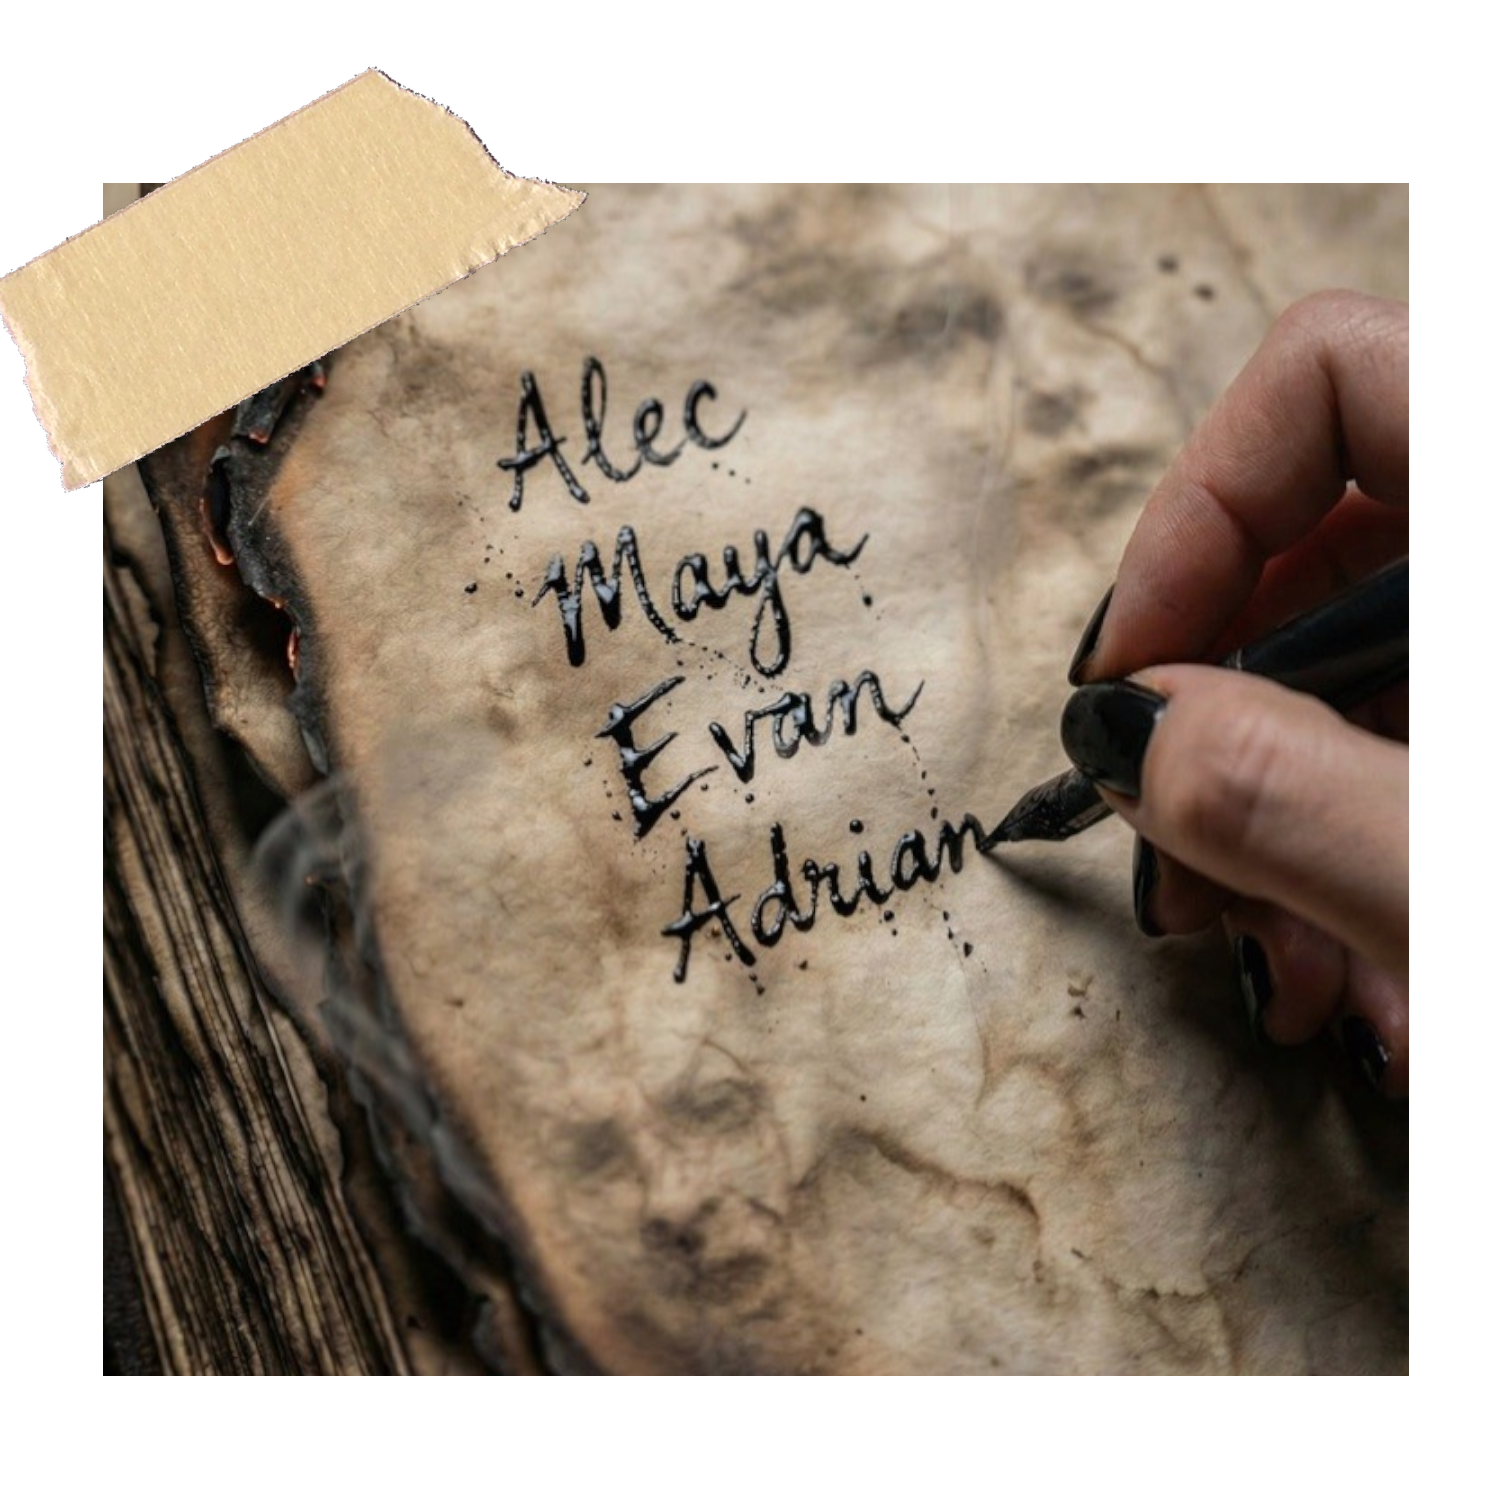 Alec
Maya
Evan
Adrian